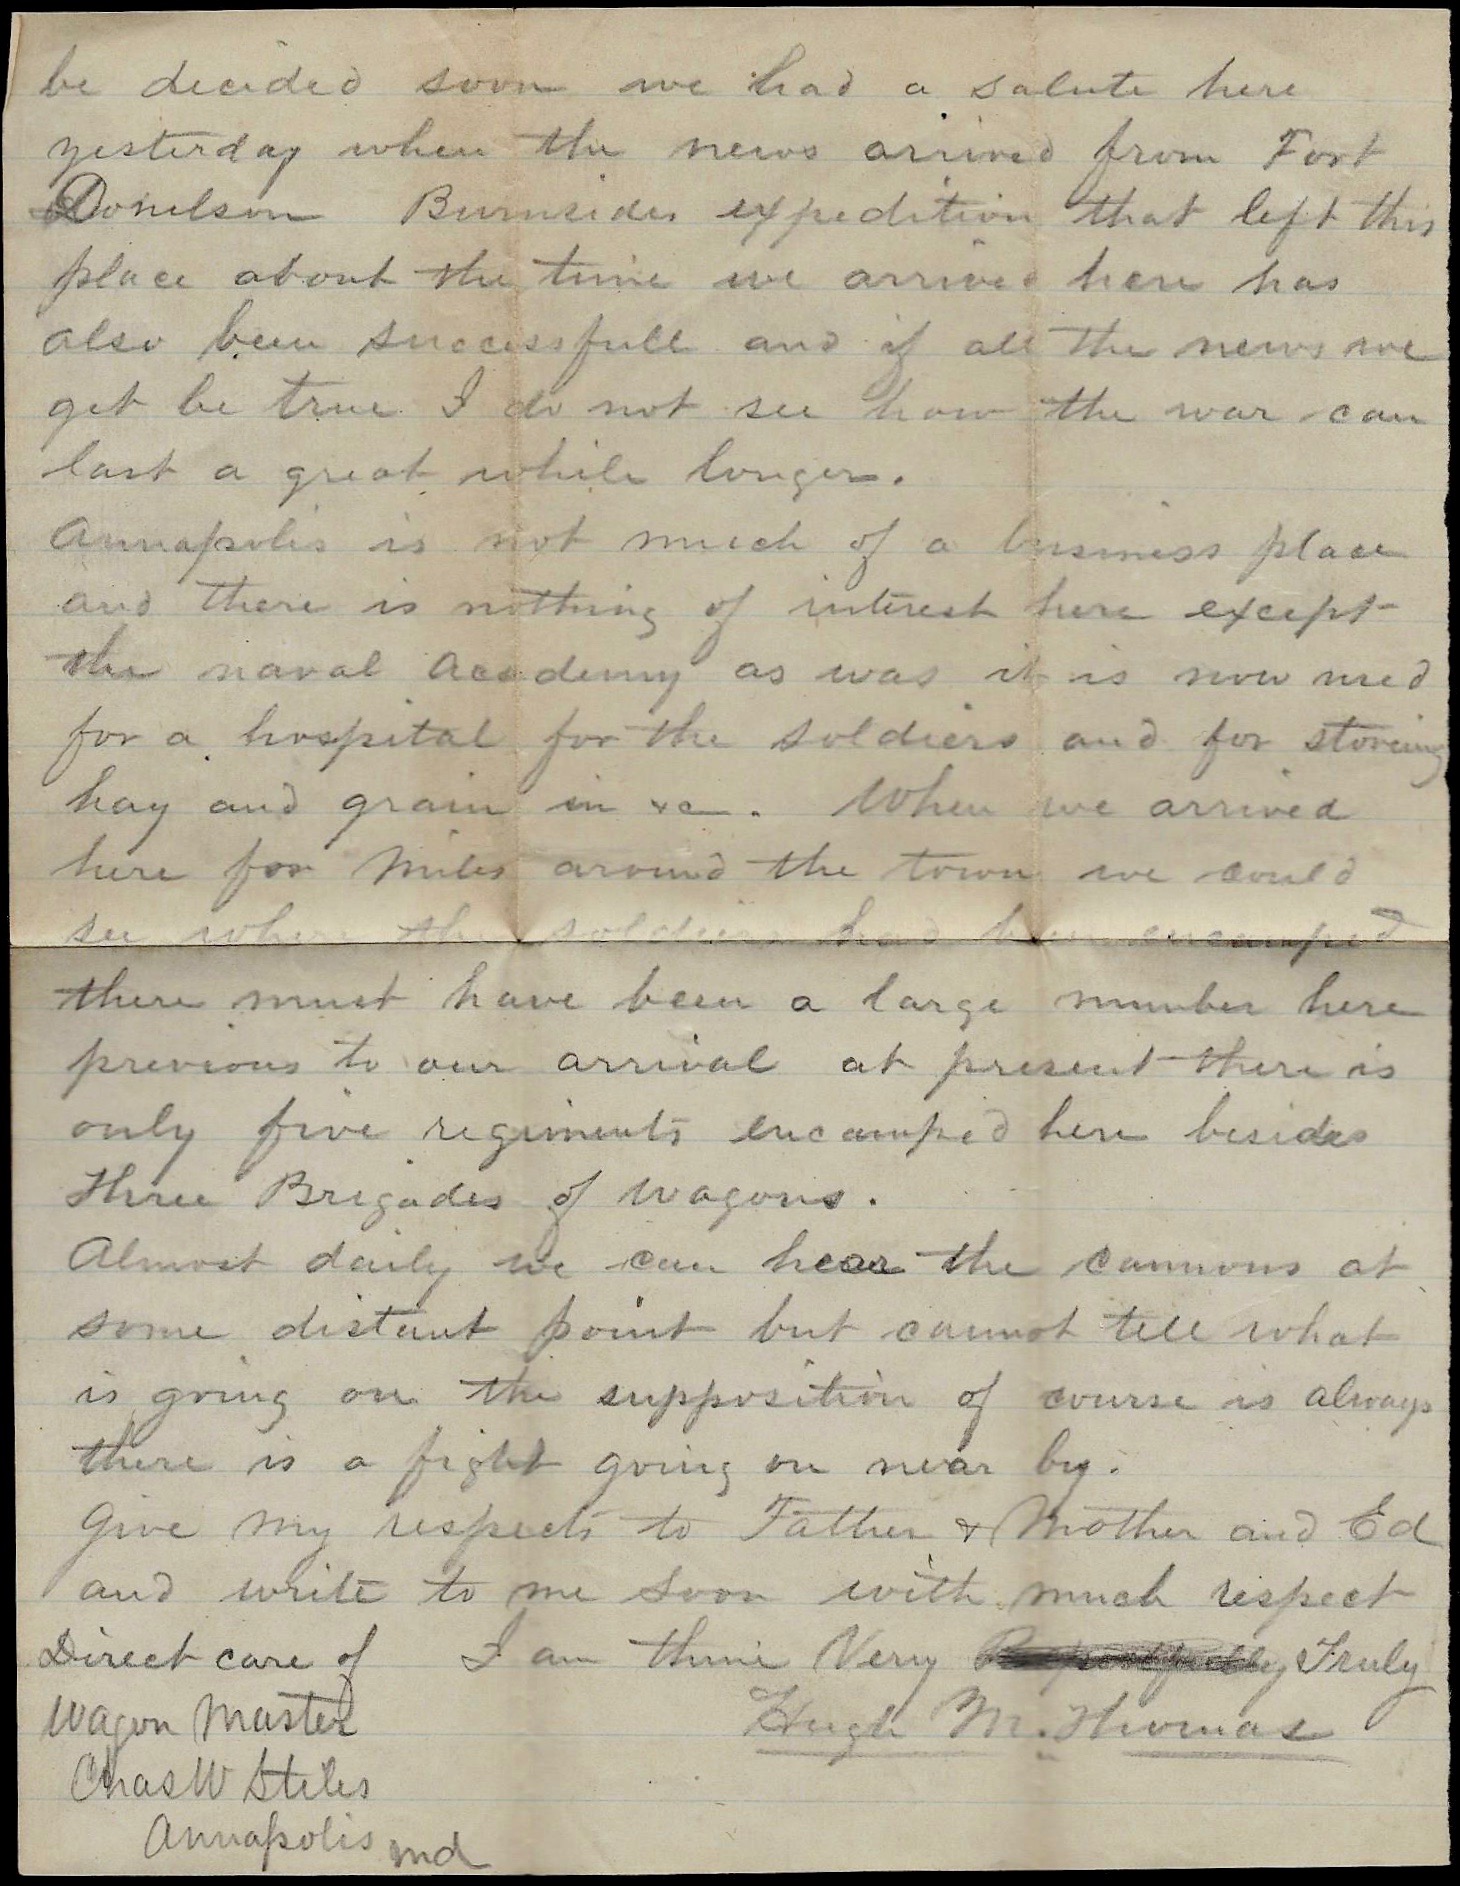 be decided soon we had a salute here
yesterday when the news arrived from Fort
Donelson Burnsides expedition that left this
place about the time we arrived here has
also been successfull and if all the news we
get be true I do not see how the war can
last a great while longer.
Annapolis is not much of a business place
and there is nothing of interest here except
the naval Academy as was it is now used
for a hospital for the soldiers and for storeing
hay and grain in &c. When we arrived
here for miles around the town we could
see where the soldiers had been encamped
there must have been a large number here
previous to our arrival at present there is
only five regiments encamped here besides
Three Brigades of wagons.
Almost daily we can hear the cannons at
some distant point but cannot tell what
is going on the supposition of course is always
there is a fight going on near by.
Give my respects to Father & Mother and Ed
and write to me soon with much respect
I am thine Very Respectfully Truly
Hugh M. Thomas
Direct care of
Wagon Master
Chas W Stiles
Annapolis md